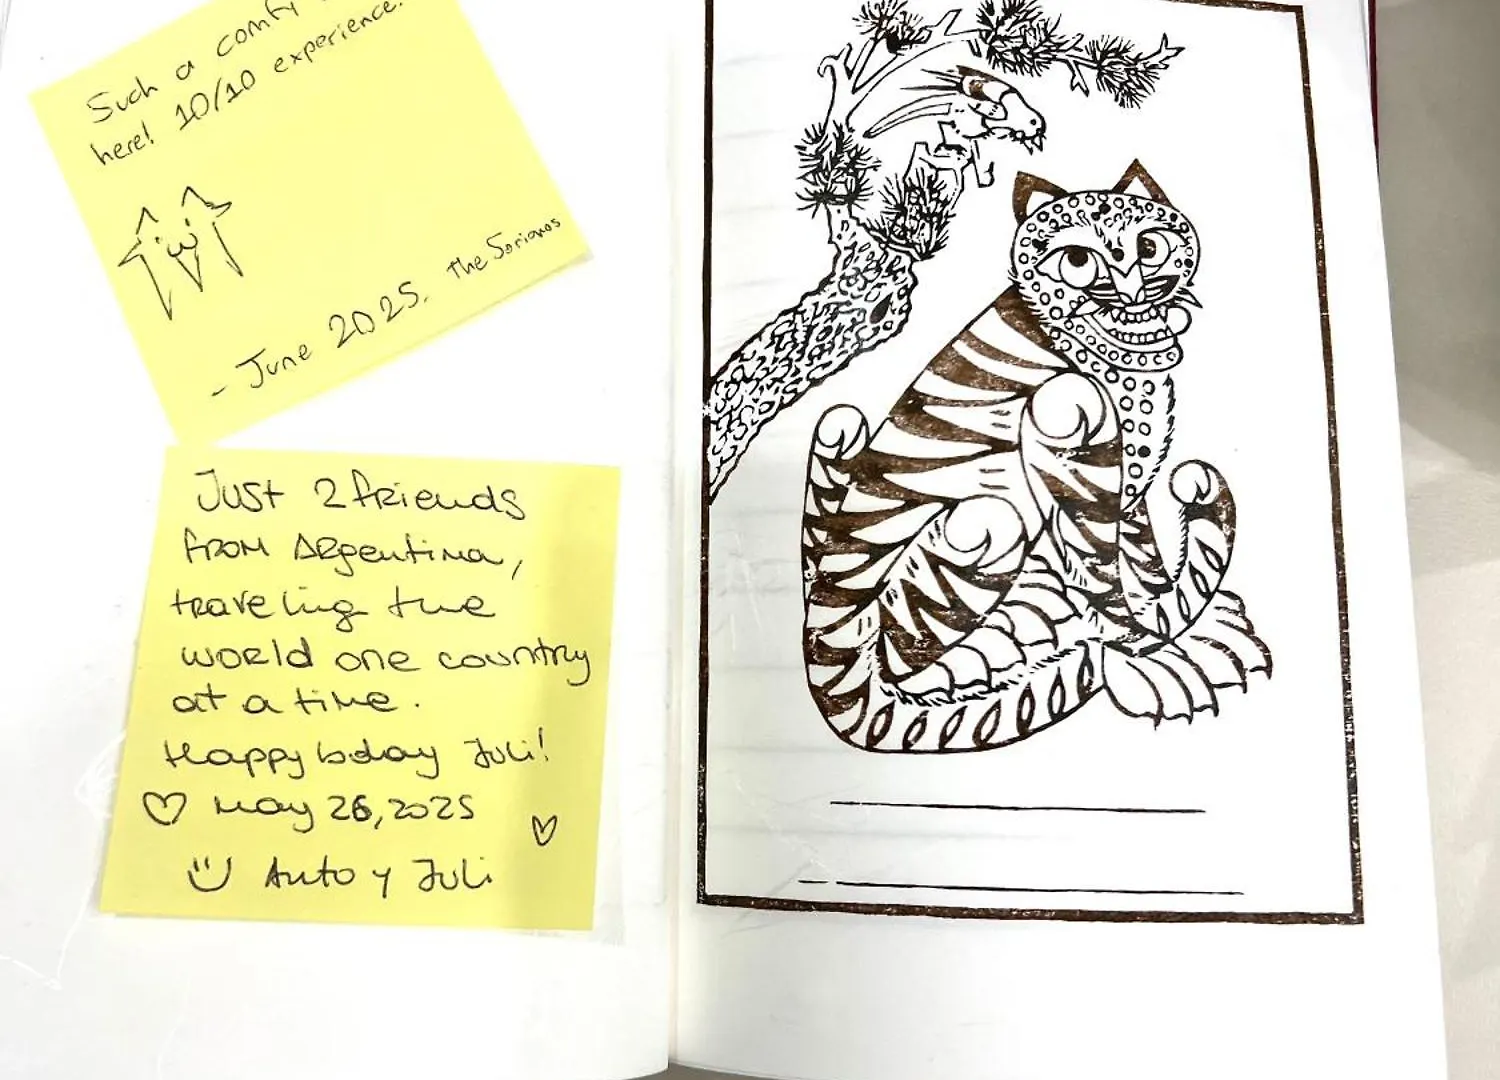 Such a comfy
here! 10/10 experience.
- June 2025. The Sorianos
Just 2 friends
from Argentina,
traveling the
world one country
at a time.
Happy bday Juli!
♡ May 26, 2025 ♡
Auto y Juli